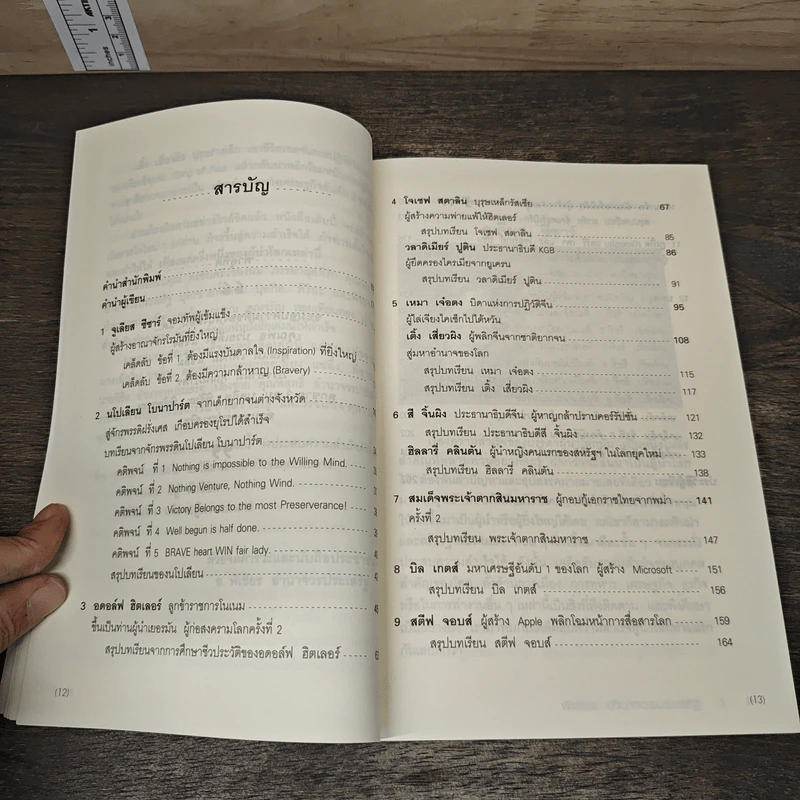 สารบัญ
คำนำสำนักพิมพ์
คำนำผู้เขียน
1 จูเลียส ซีซาร์ จอมทัพผู้เข้มแข็ง
ผู้สร้างอาณาจักรโรมันที่ยิ่งใหญ่
เคล็ดลับ ข้อที่ 1 ต้องมีแรงบันดาลใจ (Inspiration) ที่ยิ่งใหญ่
เคล็ดลับ ข้อที่ 2 ต้องมีความกล้าหาญ (Bravery)
2 นโปเลียน โบนาปาร์ต จากเด็กยากจนต่างจังหวัด
สู่จักรพรรดิฝรั่งเศส เกือบครองยุโรปได้สำเร็จ
บทเรียนจากจักรพรรดินโปเลียน โบนาปาร์ต
คติพจน์ ที่ 1 Nothing is impossible to the Willing Mind.
คติพจน์ ที่ 2 Nothing Venture, Nothing Wind.
คติพจน์ ที่ 3 Victory Belongs to the most Preserverance!
คติพจน์ ที่ 4 Well begun is half done.
คติพจน์ ที่ 5 BRAVE heart WIN fair lady.
สรุปบทเรียนของนโปเลียน
3 อดอล์ฟ ฮิตเลอร์ ลูกข้าราชการโนเนม
ขึ้นเป็นท่านผู้นำเยอรมัน ผู้ก่อสงครามโลกครั้งที่ 2
สรุปบทเรียนจากการศึกษาชีวประวัติของอดอล์ฟ ฮิตเลอร์
(12)
4 โจเซฟ สตาลิน บุรุษเหล็กรัสเซีย 67
ผู้สร้างความพ่ายแพ้ให้ฮิตเลอร์
สรุปบทเรียน โจเซฟ สตาลิน 85
วลาดิเมียร์ ปูติน ประธานาธิบดี KGB 86
ผู้ยึดครองไครเมียจากยูเครน
สรุปบทเรียน วลาดิเมียร์ ปูติน 91
5 เหมา เจ๋อตง บิดาแห่งการปฏิวัติจีน 95
ผู้ไล่เจียงไคเช็กไปไต้หวัน
เติ้ง เสี่ยวผิง ผู้พลิกจีนจากชาติยากจน 108
สู่มหาอำนาจของโลก
สรุปบทเรียน เหมา เจ๋อตง 115
สรุปบทเรียน เติ้ง เสี่ยวผิง 117
6 สี จิ้นผิง ประธานาธิบดีจีน ผู้หาญกล้าปราบคอร์รัปชั่น 121
สรุปบทเรียน ประธานาธิบดีสี จิ้นผิง 132
ฮิลลารี่ คลินตัน ผู้นำหญิงคนแรกของสหรัฐฯ ในโลกยุคใหม่ 133
สรุปบทเรียน ฮิลลารี่ คลินตัน 138
7 สมเด็จพระเจ้าตากสินมหาราช ผู้กอบกู้เอกราชไทยจากพม่า 141
ครั้งที่ 2
สรุปบทเรียน พระเจ้าตากสินมหาราช 147
8 บิล เกตส์ มหาเศรษฐีอันดับ 1 ของโลก ผู้สร้าง Microsoft 151
สรุปบทเรียน บิล เกตส์ 156
9 สตีฟ จอบส์ ผู้สร้าง Apple พลิกโฉมหน้าการสื่อสารโลก 159
สรุปบทเรียน สตีฟ จอบส์ 164
(13)